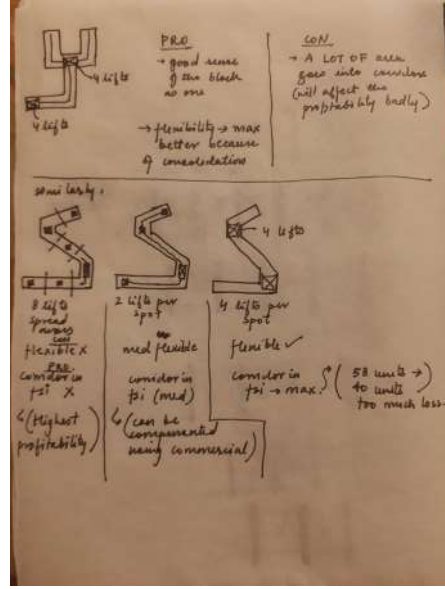 PRO
→ good sense
of the block
as one
→ flexibility → max
better because
of consolidation
CON
→ A LOT OF area
goes into corridors
(will affect the
profitability badly)
4 lifts
4 lifts
similarly,
8 lifts
spread
away
CON
flexible X
PRO
corridor in
fsi X
↳ (Highest
profitability)
2 lifts per
spot
med flexible
corridor in
fsi (med)
↳ (can be
compensated
using commercial)
4 lifts
4 lifts per
spot
flexible ✓
corridor in
fsi → max.
(58 units →
40 units)
too much loss.